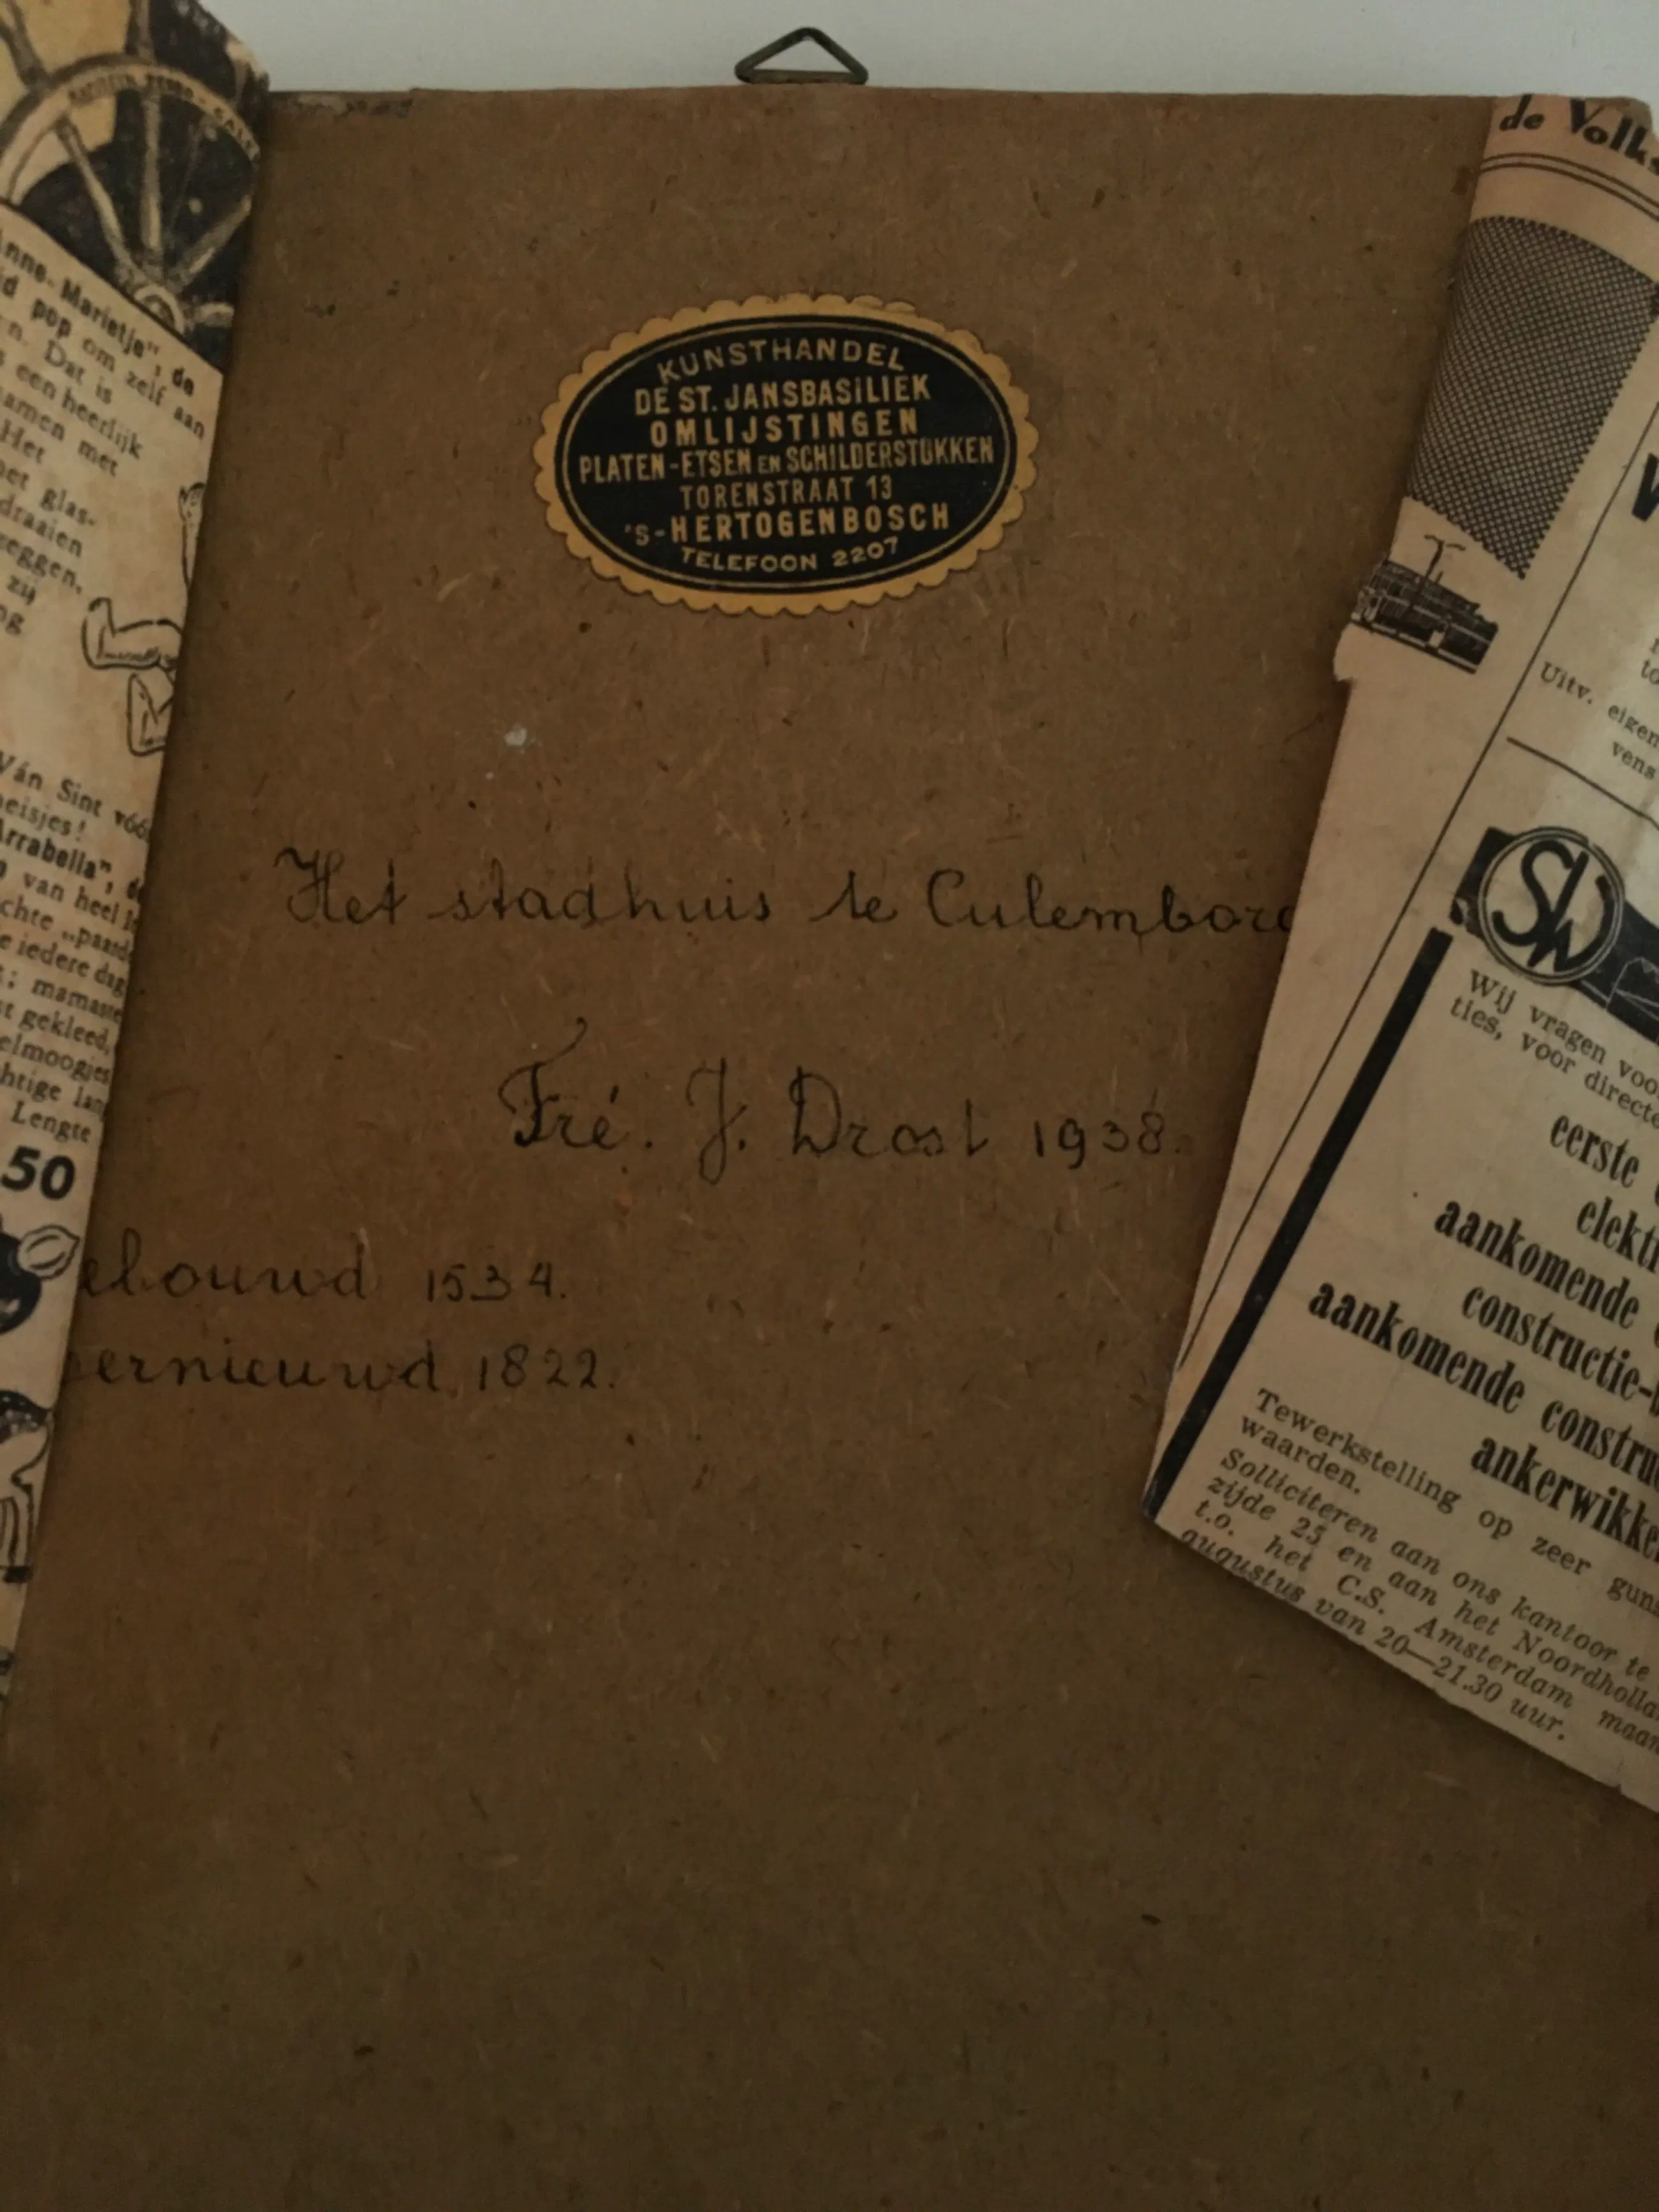 KUNSTHANDEL
DE ST. JANSBASILIEK
OMLIJSTINGEN
PLATEN-ETSEN EN SCHILDERSTUKKEN
TORENSTRAAT 13
'S-HERTOGENBOSCH
TELEFOON 2207
Het stadhuis te Culemborg
Fré. J. Drost 1938.
ebouwd 1534.
ernieuwd 1822.
nne-Marietje", de
d pop om zelf aan
n. Dat is
een heerlijk
amen met
Het
oet glas-
draaien
zeggen,
zij
og
Ván Sint vóó
eisjes!
Arrabella", de
van heel
chte „paard
e iedere dag
; mamaste
t gekleed,
elmoogjes
htige lan
Lengte
50
de Volks
Uitv. eigen
vens
SW
Wij vragen voo
ties, voor directe
eerste
elektr
aankomende
constructie-
aankomende constru
ankerwikke
Tewerkstelling op zeer guns
waarden.
Solliciteren aan ons kantoor te
zijde 25 en aan het Noordholla
t.o. het C.S. Amsterdam maan
augustus van 20—21.30 uur.